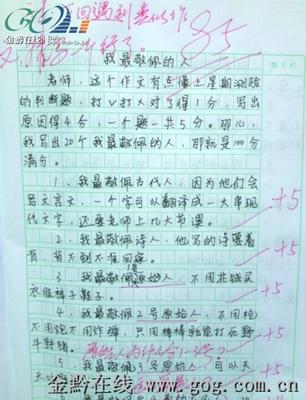 金黔在线
www.gog.com.cn
85
我最敬佩的人
老师，这个作文有点像上星期测验
的判断题，打√打×对了得1分，写出
原因得4分，一个题一共5分。那么，
我写出20个我最敬佩的人，那就是100分
满分。
1、我最敬佩古代人，因为他们会
写文言文，一个字可以翻译成一大串现
代文字，还要老师上几大节课。
+5
2、我最敬佩诗人，他写的诗要背
背，背不到不准回家。
+5
3、我最敬佩原始人，不用花钱买
衣服裤子鞋子。
+5
4、我最敬佩2号原始人，不用枪
不用炮不用炸弹，只用棒棒就能打死野
牛野猪。
+5
5、我最敬佩3号原始人，可以天
+5
金黔在线 www.gog.com.cn